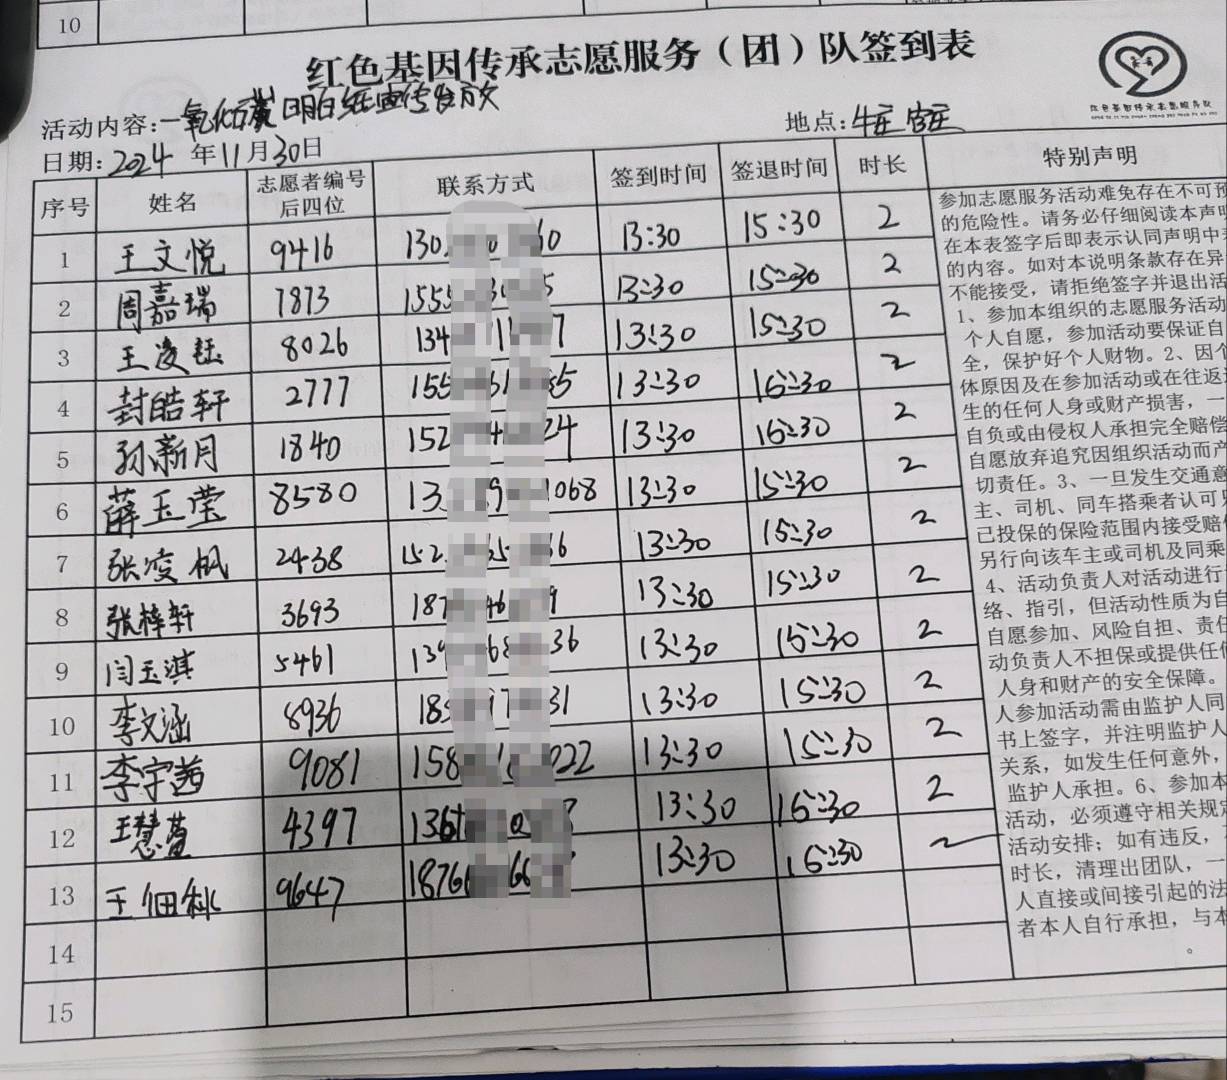 10
红色基因传承志愿服务（团）队签到表
活动内容:一氧化碳明白纸宣传发放
地点:牛庄官庄
日期:2024年11月30日
序号 姓名 志愿者编号后四位 联系方式 签到时间 签退时间 时长 特别声明
1 王文悦 9416 130 60 13:30 15:30 2
2 周嘉瑞 7873 1555 5 13:30 15:30 2
3 王凌钰 8026 134 7 13:30 15:30 2
4 封皓轩 2777 155 85 13:30 15:30 2
5 孙新月 1840 152 24 13:30 15:30 2
6 薛玉莹 8580 13 1068 13:30 15:30 2
7 张凌枫 2438 152 66 13:30 15:30 2
8 张梓轩 3693 187 9 13:30 15:30 2
9 闫玉淇 5461 139 36 13:30 15:30 2
10 李文涵 8936 185 31 13:30 15:30 2
11 李宇茜 9081 158 022 13:30 15:30 2
12 王慧萱 4397 136 13:30 15:30 2
13 王佃秋 9647 1876 13:30 15:30 2
14
15
参加志愿服务活动难免存在不可预
的危险性。请务必仔细阅读本声明
在本表签字后即表示认同声明中
的内容。如对本说明条款存在异
不能接受，请拒绝签字并退出活
1、参加本组织的志愿服务活动
个人自愿，参加活动要保证自
全，保护好个人财物。2、因个
体原因及在参加活动或在往返
生的任何人身或财产损害，一
自负或由侵权人承担完全赔偿
自愿放弃追究因组织活动而产
切责任。3、一旦发生交通意
主、司机、同车搭乘者认可
己投保的保险范围内接受赔
另行向该车主或司机及同乘
4、活动负责人对活动进行
络、指引，但活动性质为自
自愿参加、风险自担、责任
动负责人不担保或提供任何
人身和财产的安全保障。
人参加活动需由监护人同
书上签字，并注明监护人
关系，如发生任何意外，
监护人承担。6、参加本
活动，必须遵守相关规定
活动安排；如有违反，
时长，清理出团队，一
人直接或间接引起的法
者本人自行承担，与本
。